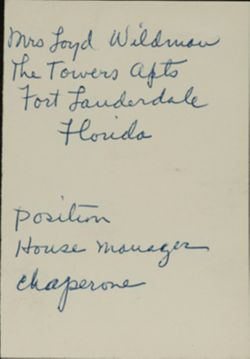 Mrs Loyd Wildman
The Towers Apts
Fort Lauderdale
Florida
Position
House Manager
Chaperone